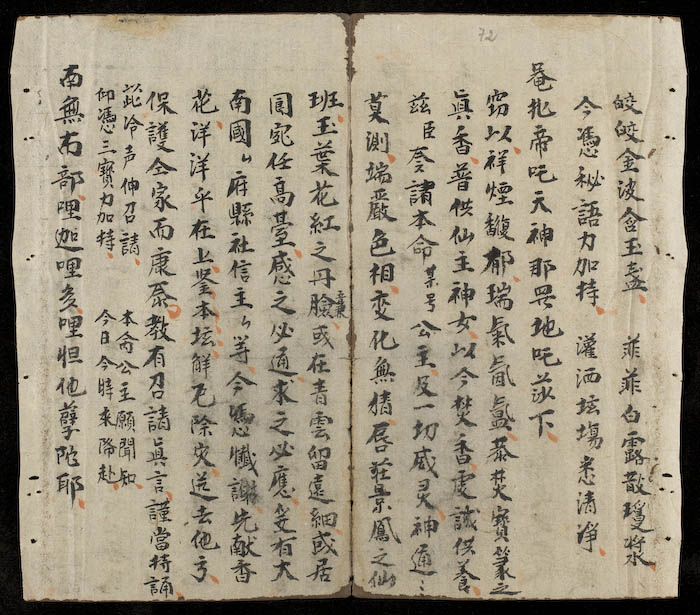 72
皎皎金波含玉盞 菲菲白露散瓊漿
今憑秘語力加持 灌洒坛場悉清净
唵扎帝吒天神那畧地吒莎下
窃以祥煙馥郁瑞氣氤氳恭焚寶篆之
真香普供仙主神女以今焚香虔誠供養
兹臣奉請本命某号公主及一切威灵神通〻
莫測端嚴色相变化無猜唇莊景鳳之仙
班玉葉花紅之丹臉或在青雲留遠細或居
閬宛任高臺感之必通求之必應爰有大
南國〻府縣社信主〻等今憑懺謝先献香
花洋洋乎在上鉴本坛解厄除灾送去他方
保護全家而康泰教有召請真言謹當持誦
此冷声伸召請 本命公主願聞知
仰憑三寶力加持 今日今時來降赴
南無部部哩迦哩多哩怛他孽陀耶